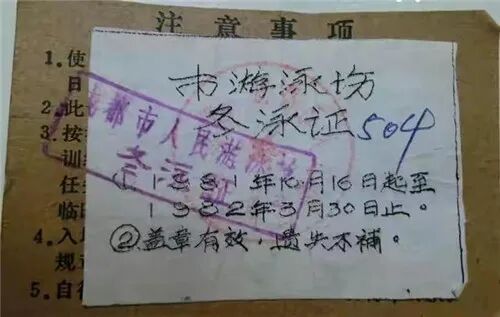 注意事项
1. 使
日
2. 此
3. 按
训
任
临
4. 入
规
5. 自行
市游泳场
冬泳证 504
成都市人民游泳池
冬泳证
① 1981年10月16日起至
1982年3月30日止。
②盖章有效，遗失不補。